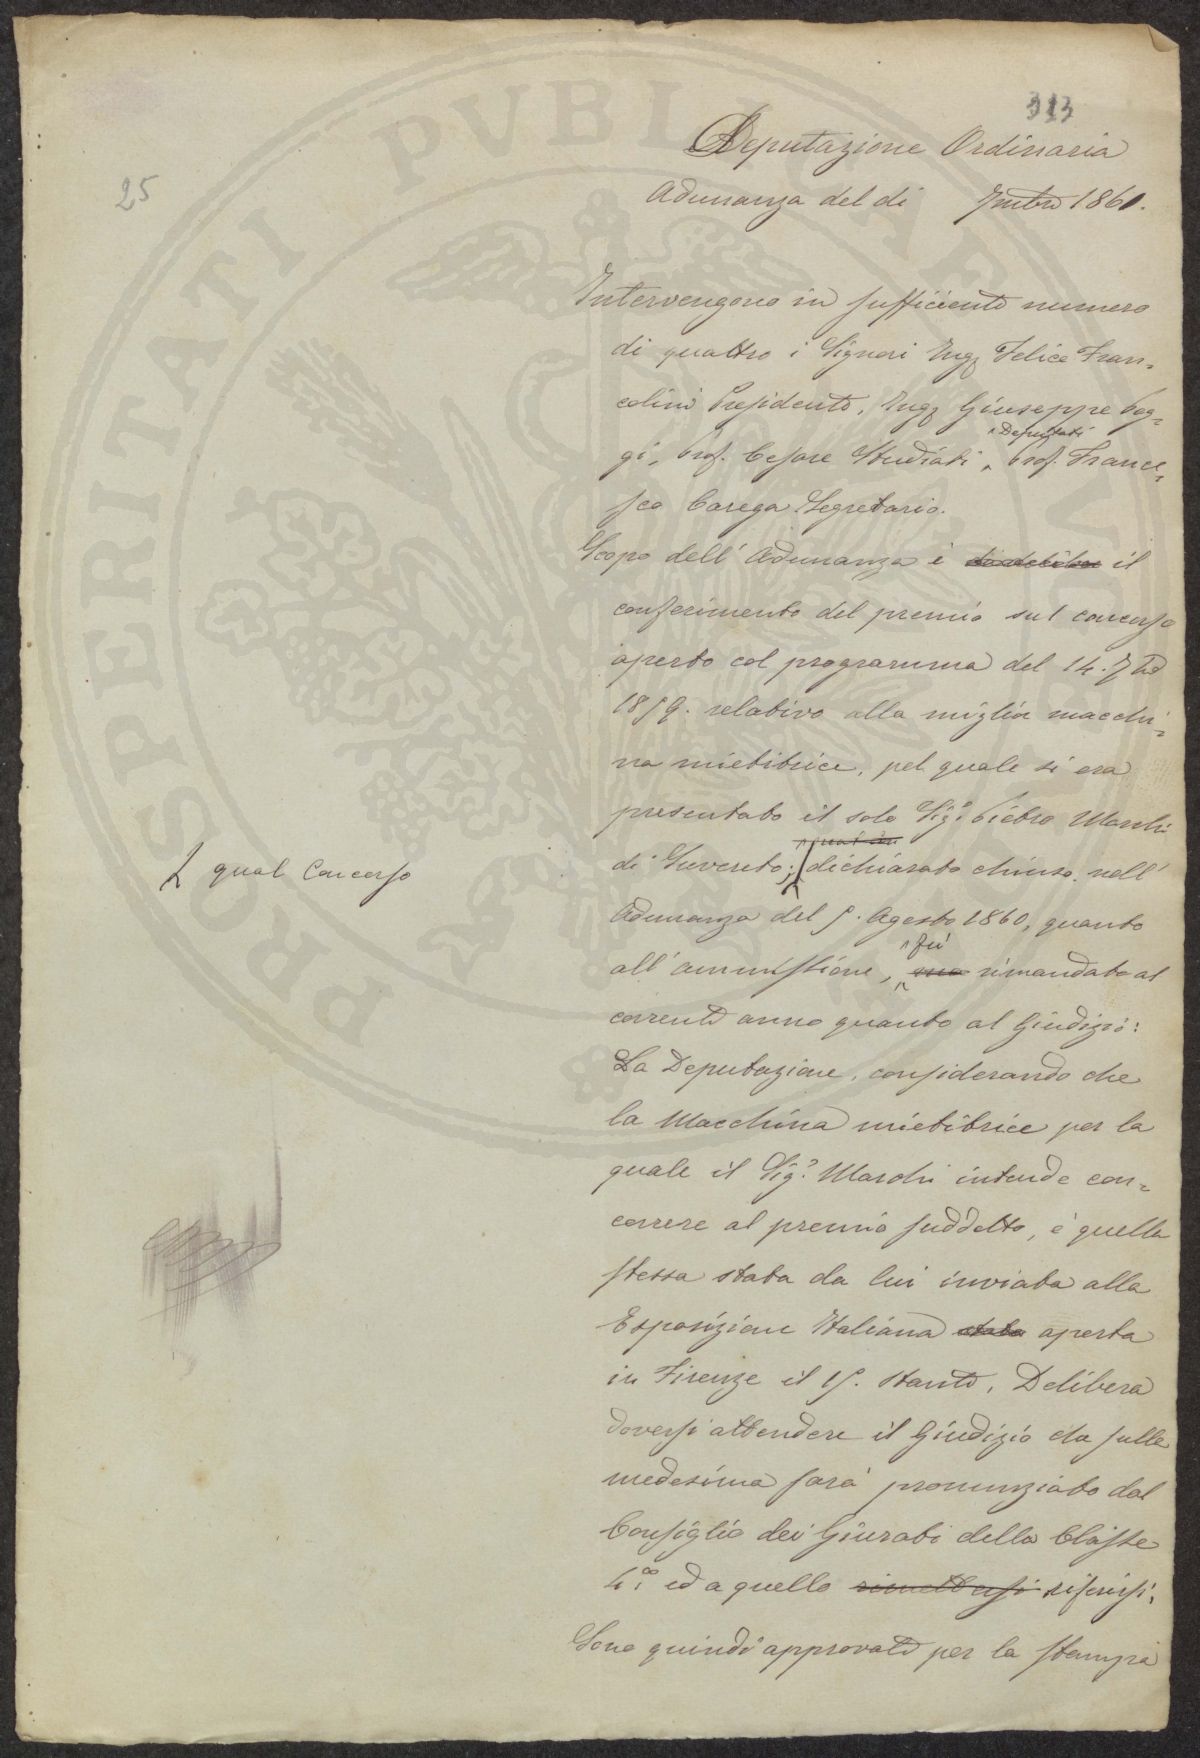 313
25
Deputazione Ordinaria
Adunanza del dì 7mbre 1861.
Intervengono in sufficiente numero
di quattro i Signori Ingr Felice Fran-
colini Presidente, Ingr Giuseppe Pog-
Deputati
gi, Prof. Cesare Studiati, Prof. France-
sco Carega Segretario.
Scopo dell' Adunanza è il
conferimento del premio sul concorso
aperto col programma del 14. 7bre
1859. relativo alla miglior macchi-
na mietitrice, pel quale si era
presentato il solo Sigr Pietro Marchi
qual concorso
di Suvereto; dichiarato chiuso nell'
Adunanza del 5. Agosto 1860, quanto
fù
all' ammissione, rimandato al
corrente anno quanto al Giudizio:
La Deputazione, considerando che
la Macchina mietitrice per la
quale il Sigr Marchi intende con-
correre al premio suddetto, è quella
stessa stata da lui inviata alla
Esposizione Italiana stata aperta
in Firenze il 15. stante, Delibera
doversi attendere il Giudizio che sulla
medesima sarà pronunziato dal
Consiglio dei Giurati della Classe
ed a quello rimettersi riferirsi.
Sono quindi approvate per la stampa
PROSPERITATI PVBLICAE